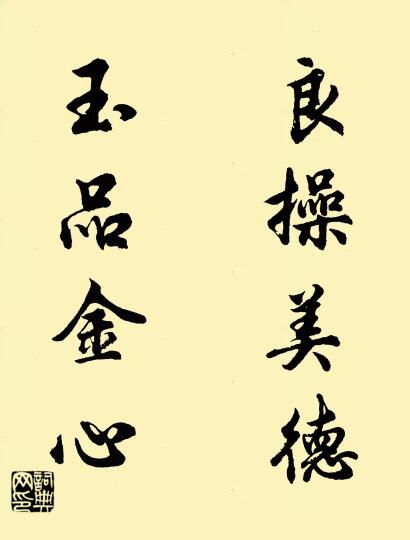 良操美德
玉品金心
詞典网